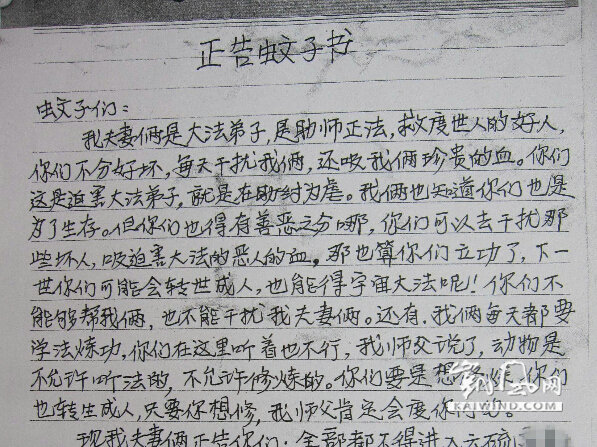 正告蚊子书
蚊子们：
我夫妻俩是大法弟子，是助师正法，救度世人的好人，
你们不分好坏，每天干扰我俩，还吸我俩珍贵的血。你们
这是迫害大法弟子，就是在助纣为虐。我俩也知道你们也是
为了生存。但你们也得有善恶之分哪，你们可以去干扰那
些坏人，吸迫害大法的恶人的血。那也算你们立功了，下一
世你们可能会转世成人，也能得宇宙大法呢！你们不
能够帮我俩，也不能干扰我夫妻俩。还有，我俩每天都要
学法炼功，你们在这里听着也不行，我师父说了，动物是
不允许听法的，不允许修炼的。你们要是想 你们
也转生成人，只要你想修，我师父肯定会度你们的。
凯风网
KAIWIND.COM
现我夫妻俩正告你们：全部都不得进入